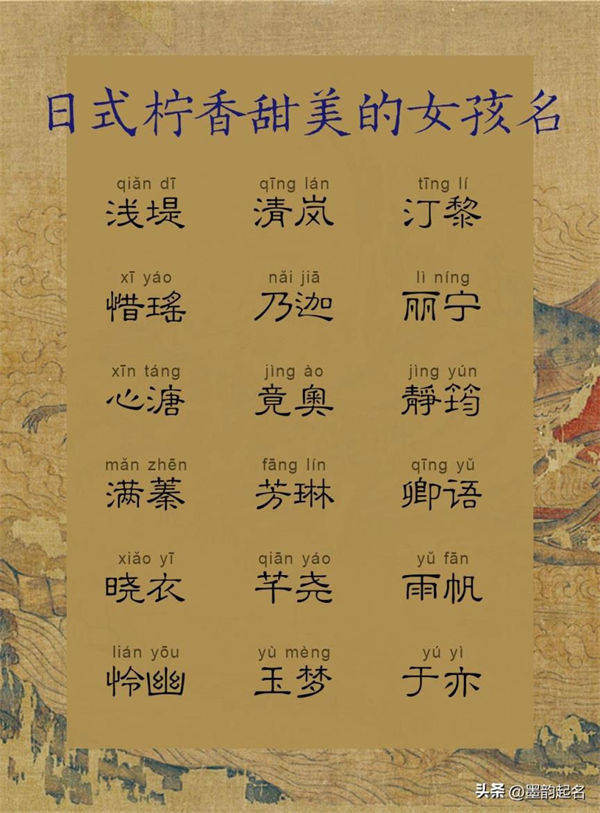 日式柠香甜美的女孩名
qiǎn dī qīng lán tīng lí
浅堤 清岚 汀黎
xī yáo nǎi jiā lì níng
惜瑶 乃迦 丽宁
xīn táng jìng ào jìng yún
心溏 竟奥 靜筠
mǎn zhēn fāng lín qīng yǔ
满蓁 芳琳 卿语
xiǎo yī qiān yáo yǔ fān
晓衣 芊尧 雨帆
lián yōu yù mèng yú yì
怜幽 玉梦 于亦
头条 @墨韵起名